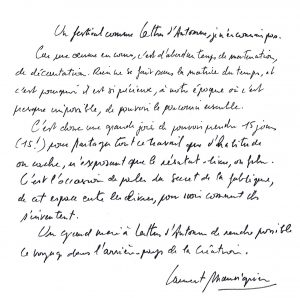 Un festival comme Lettres d'Automne, je n'en connais pas.
Car une œuvre en cours, c'est d'abord un temps de maturation,
de décantation. Rien ne se fait sans la maîtrise du temps, et
c'est pourquoi il est si précieux, à notre époque où c'est
presque impossible, de pouvoir le parcourir ensemble.
C'est donc une grande joie de pouvoir prendre 15 jours
(15 !) pour partager tout ce travail que d'habitude
on cache, n'exposant que le résultat - livre, ou film.
C'est l'occasion de parler du secret de la fabrique,
de cet espace entre les livres, pour voir comment ils
s'inventent.
Un grand merci à Lettres d'Automne de rendre possible
ce voyage dans l'arrière-pays de la création.
Laurent Mauvignier